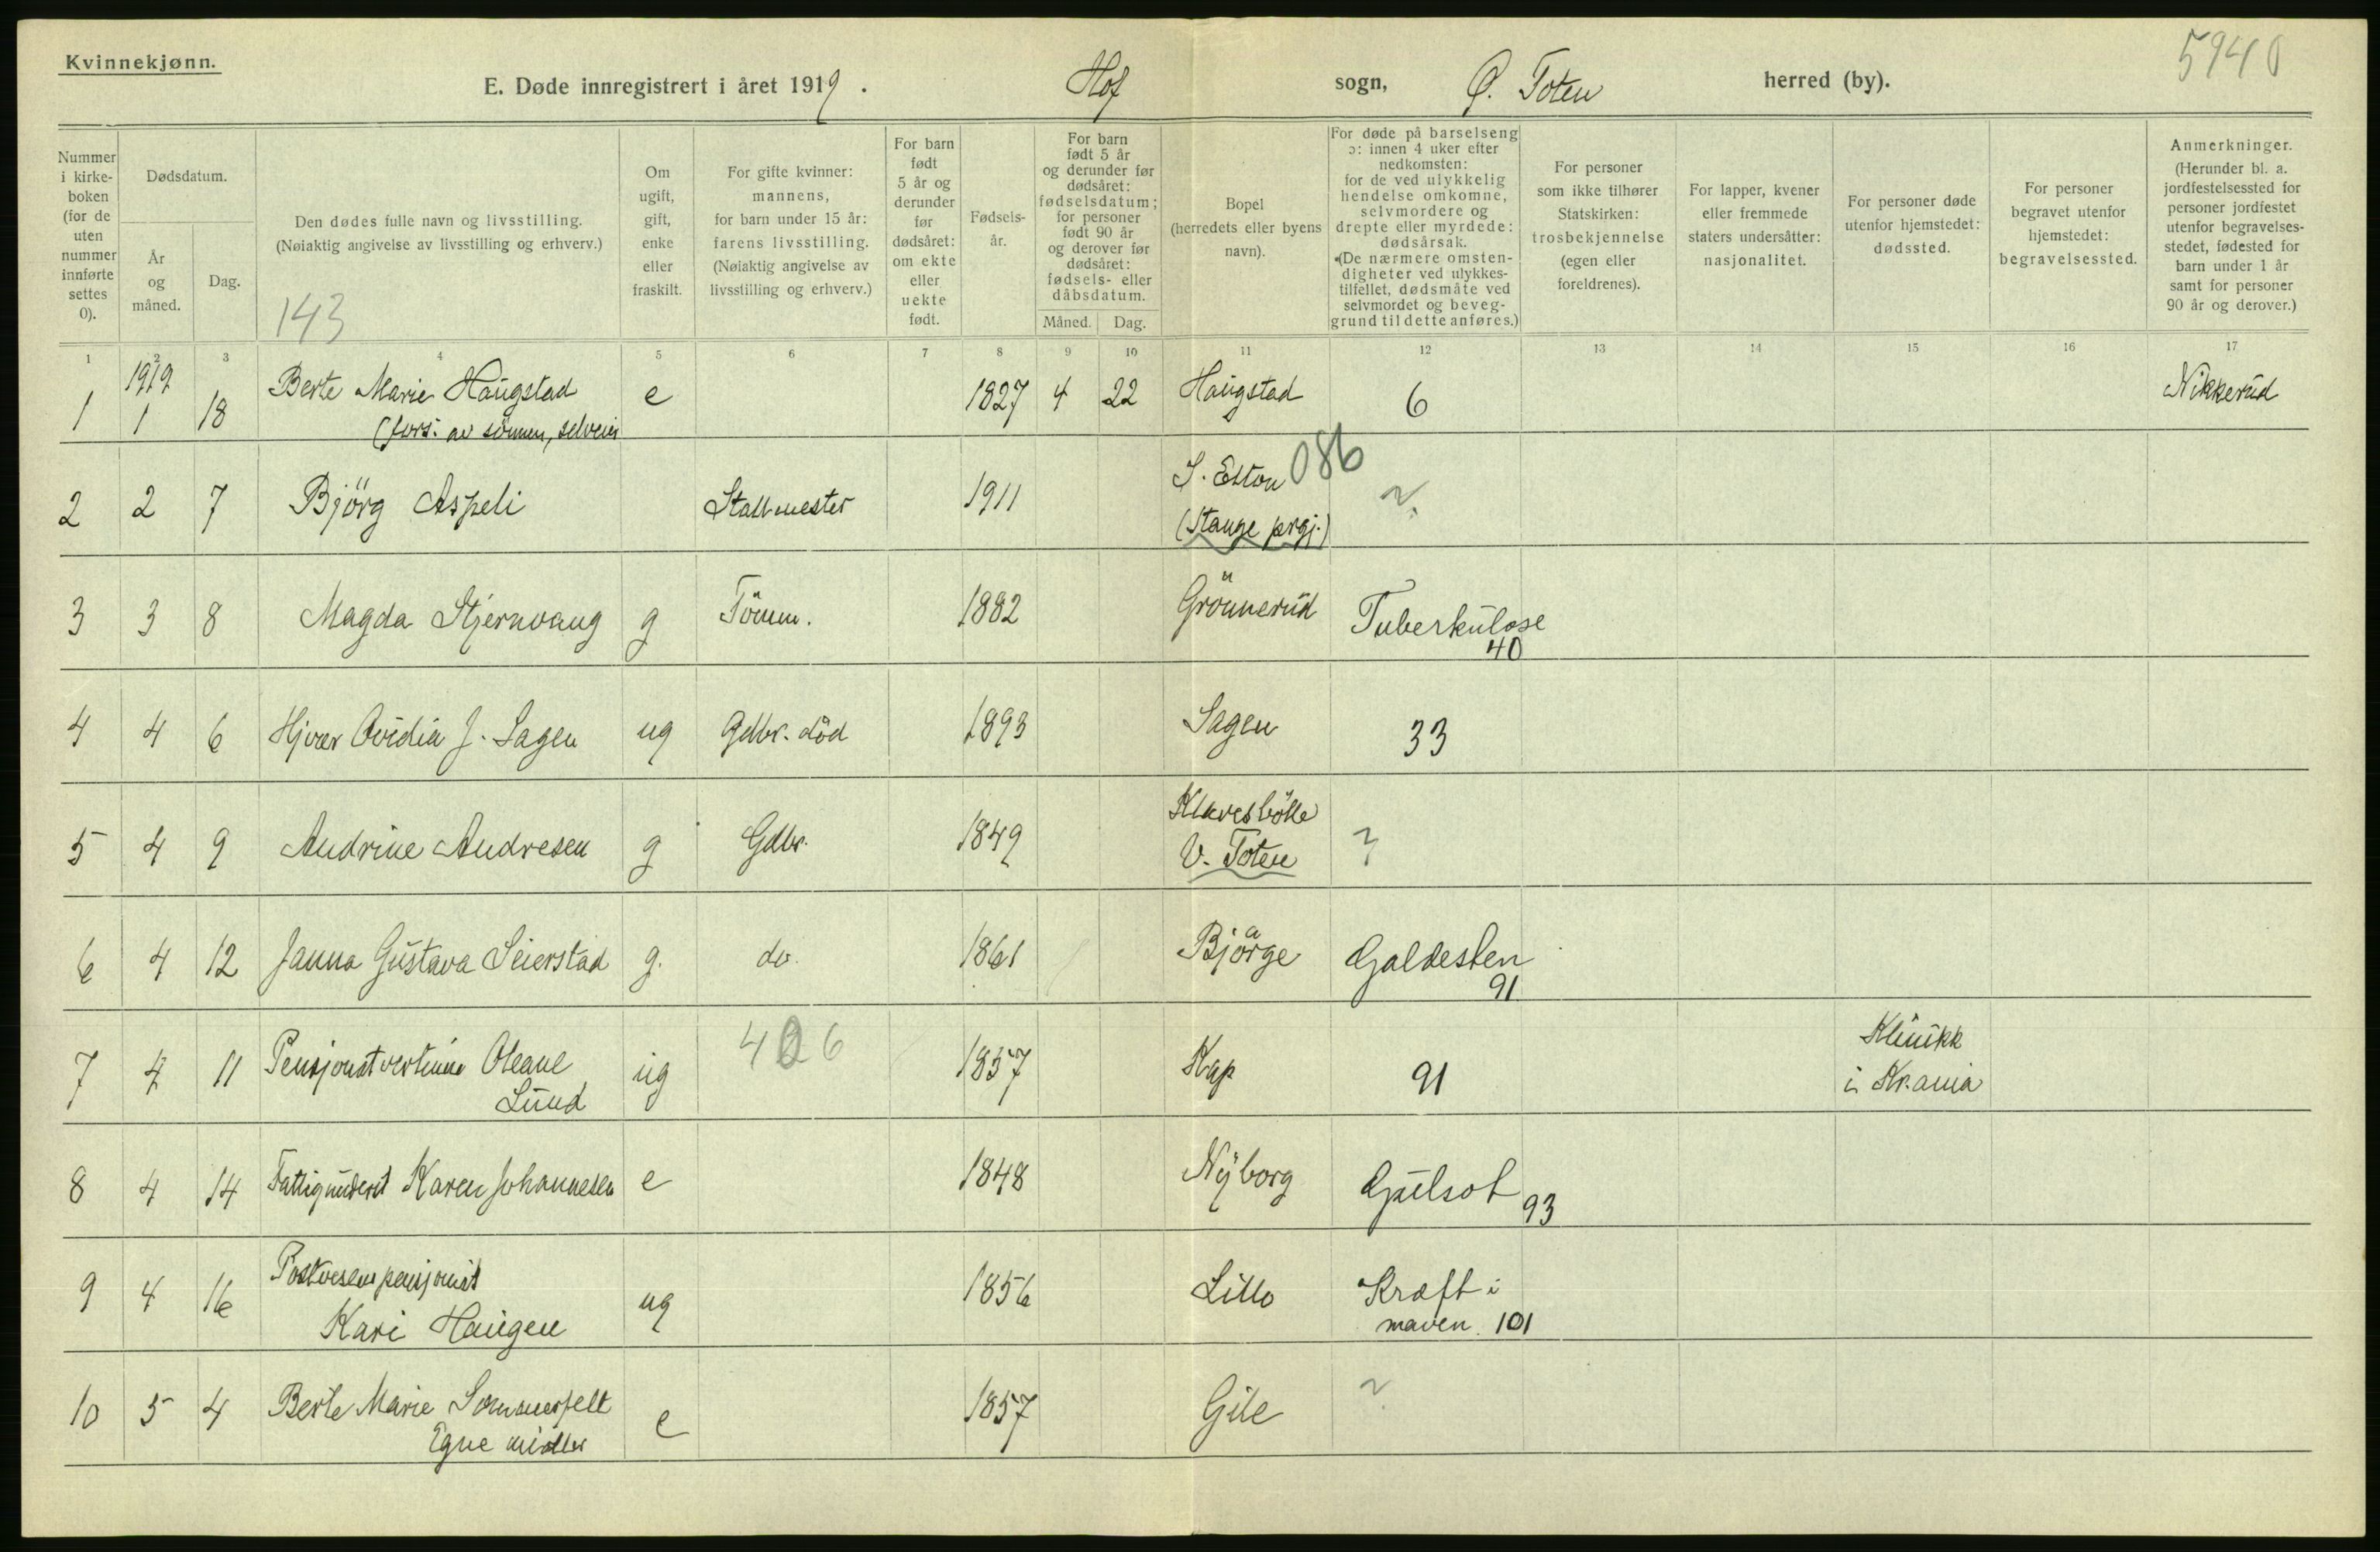 Kvinnekjønn.
5940
E. Døde innregistrert i året 1919. Hof sogn, Ø. Toten herred (by).
Nummer i kirkeboken (for de uten nummer innførte settes 0).
Dødsdatum.
År og måned.
Dag.
Den dødes fulle navn og livsstilling.
(Nøiaktig angivelse av livsstilling og erhverv.)
143
Om ugift, gift, enke eller fraskilt.
For gifte kvinner: mannens, for barn under 15 år: farens livsstilling. (Nøiaktig angivelse av livsstilling og erhverv.)
For barn født 5 år og derunder før dødsåret: om ekte eller uekte født.
Fødselsår.
For barn født 5 år og derunder før dødsåret: fødselsdatum; for personer født 90 år og derover før dødsåret: fødsels- eller dåbsdatum.
Måned. Dag.
Bopel (herredets eller byens navn).
For døde på barselseng ɔ: innen 4 uker efter nedkomsten: for de ved ulykkelig hendelse omkomne, selvmordere og drepte eller myrdede: dødsårsak. (De nærmere omstendigheter ved ulykkestilfellet, dødsmåte ved selvmordet og beveggrund til dette anføres.)
For personer som ikke tilhører Statskirken: trosbekjennelse (egen eller foreldrenes).
For lapper, kvener eller fremmede staters undersåtter: nasjonalitet.
For personer døde utenfor hjemstedet: dødssted.
For personer begravet utenfor hjemstedet: begravelsessted.
Anmerkninger. (Herunder bl. a. jordfestelsessted for personer jordfestet utenfor begravelsesstedet, fødested for barn under 1 år samt for personer 90 år og derover.)
1 2 3 4 5 6 7 8 9 10 11 12 13 14 15 16 17
1919
1 1 18 Berte Marie Haugstad e 1827 4 22 Haugstad 6 Nikkerud
(fors. av sønnen, selveier
2 2 7 Björg Aspeli Stallmester 1911 S. Elton 086 ?
(Stange prgj.)
3 3 8 Magda Stjernvang g Tömm. 1882 Grönnerud Tuberkulose
40
4 4 6 Hjvar Ovidia J. Sagen ug Gdbr. död 1893 Sagen 33
5 4 9 Andrine Andresen g Gdbr. 1849 V. Toten ?
6 4 12 Janna Gustava Seierstad g. do. 1861 Bjørge Galdesten
91
7 4 11 Pensjonatvertinne Oleane ug 426 1857 Kap 91 Klinikk
Lund i Kr.ania
8 4 14 Fattigunderst Karen Johannesen e 1848 Nyborg Gulsot 93
9 4 16 Postvesenpensjonist ug 1856 Lillo Kræft i
Kari Haugen maven 101
10 5 4 Berte Marie Sommerfelt e 1857 Gile ?
Egne midler